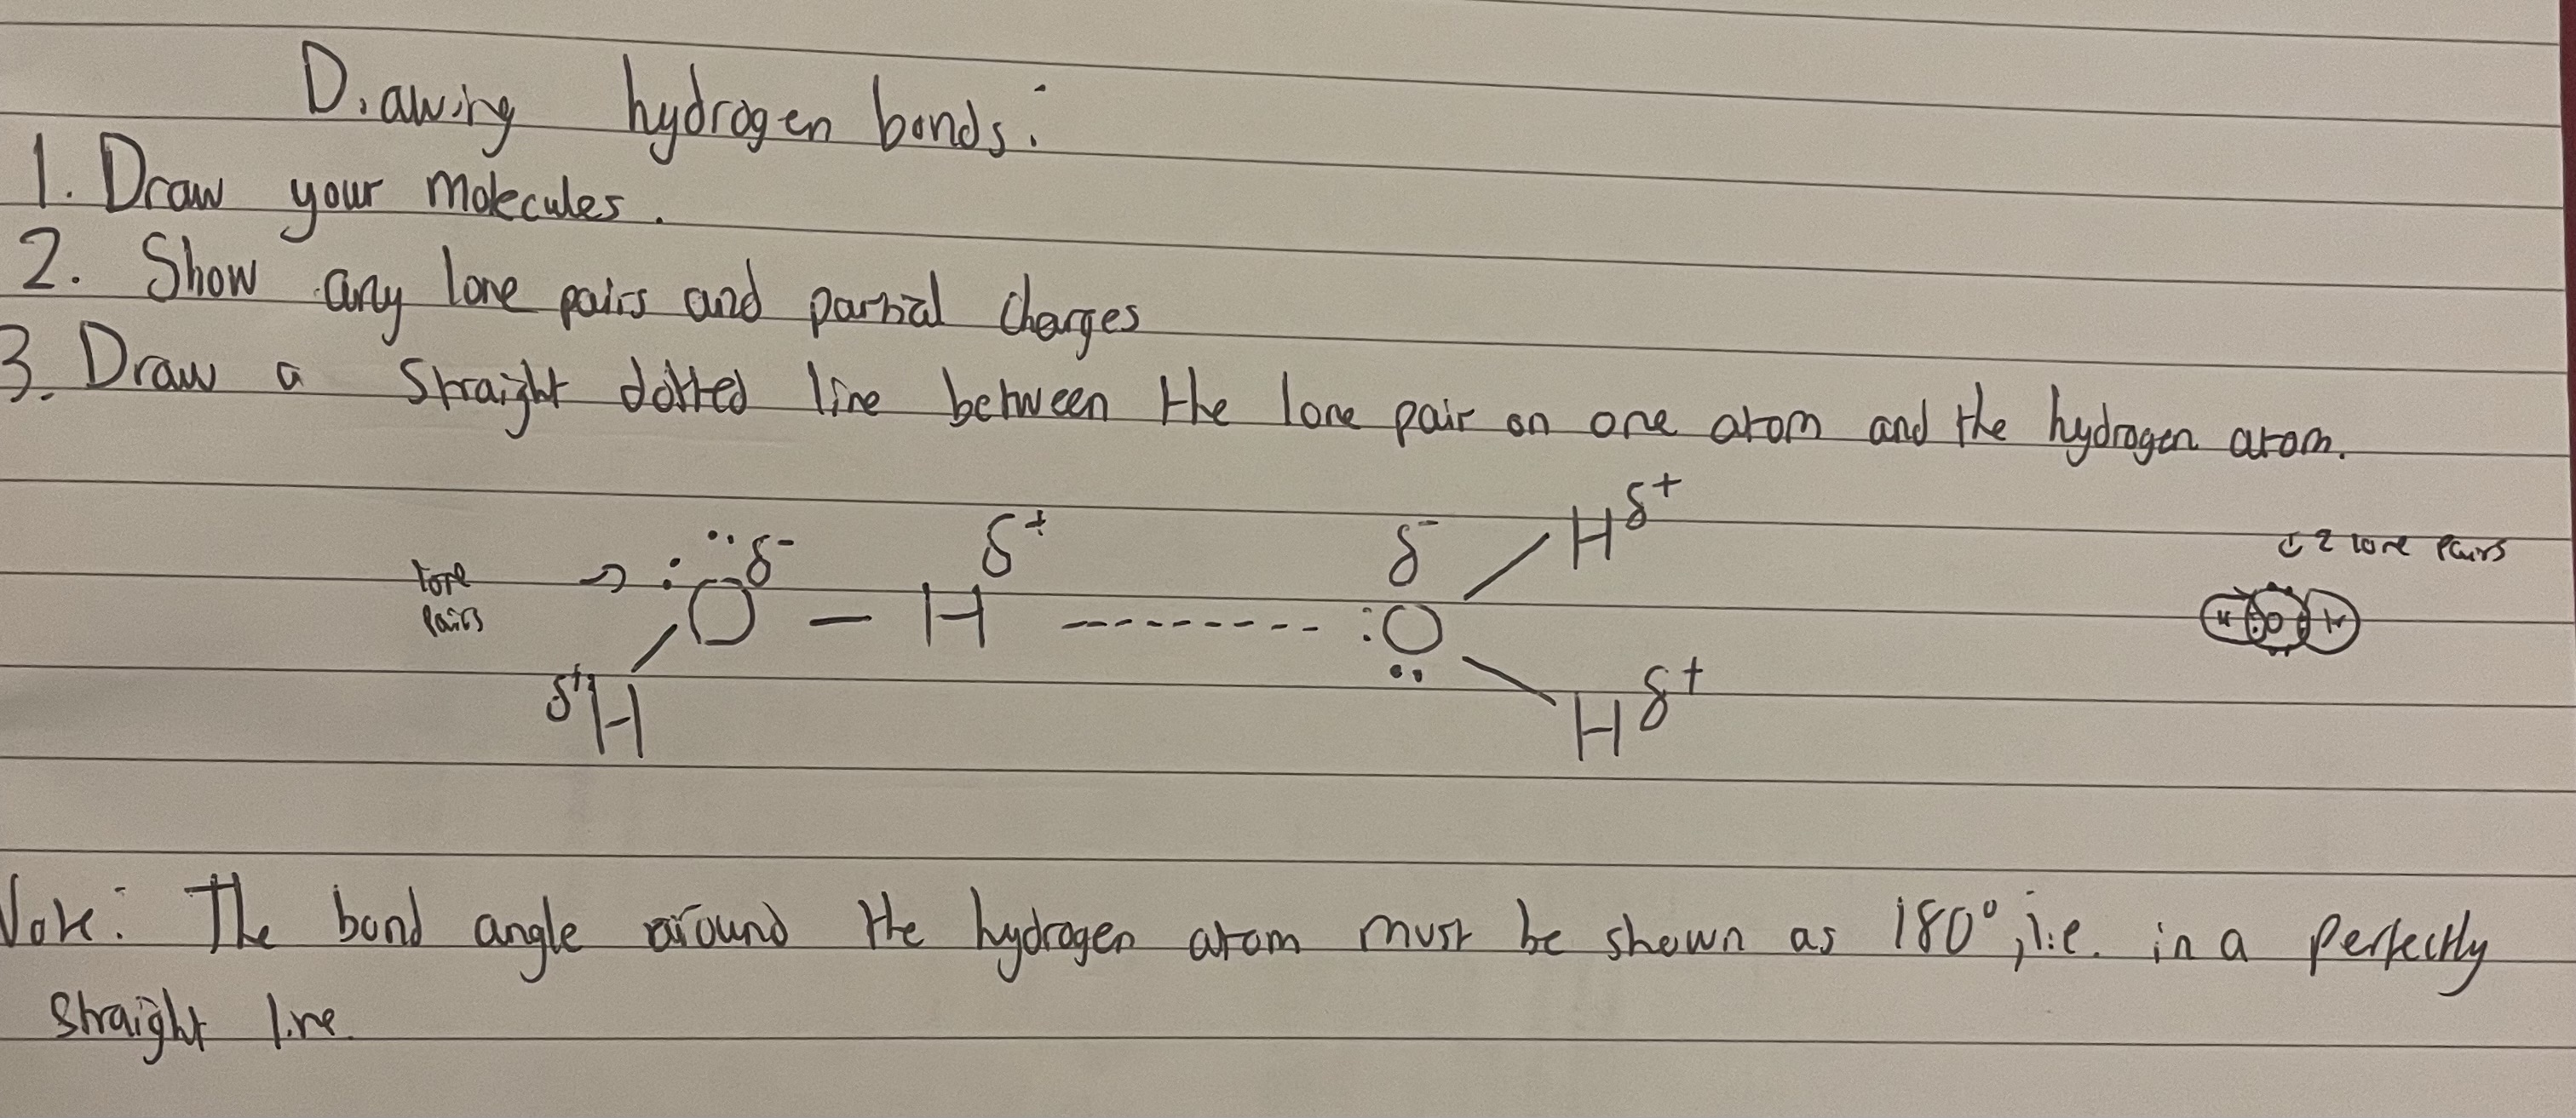 Drawing hydrogen bonds:
1. Draw your molecules.
2. Show any lone pairs and partial charges
3. Draw a straight dotted line between the lone pair on one atom and the hydrogen atom.
δ+
δ- δ+ δ- H
lone → : O — H -------- : O ↓ 2 lone pairs
pairs H O H
δ+ H H δ+
Note: The bond angle around the hydrogen atom must be shown as 180°, i.e. in a perfectly
straight line.